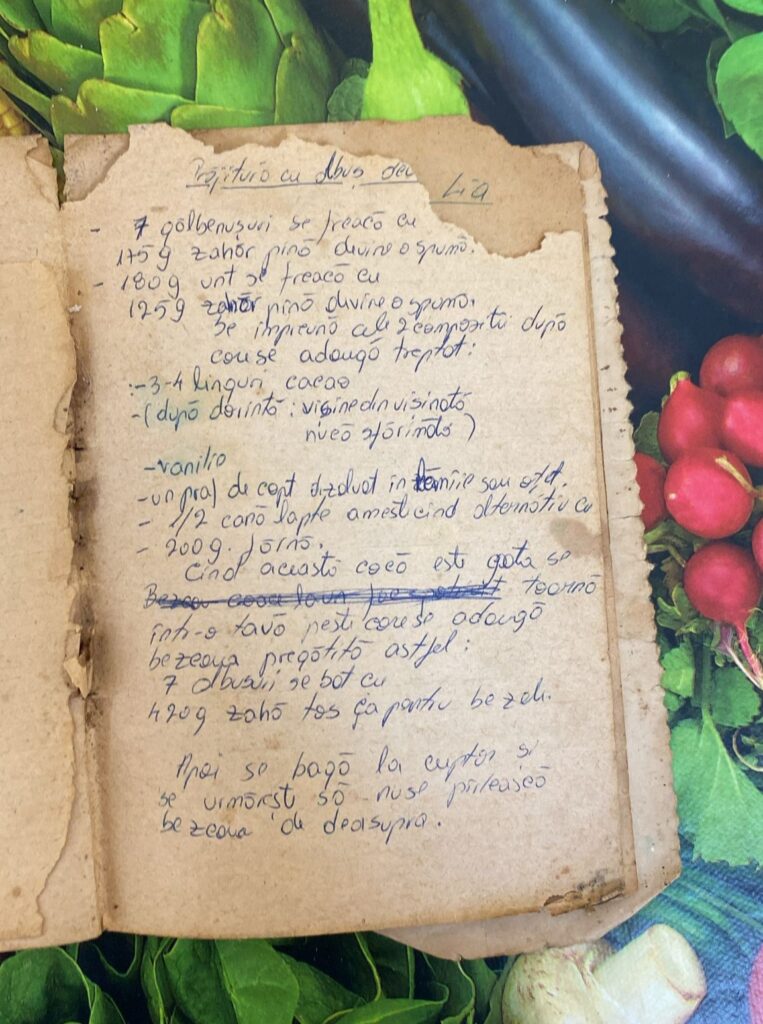 Prăjitură cu albuș deu
Lia
- 7 gălbenușuri se freacă cu
175g zahăr pînă devine o spumă.
- 180g unt se freacă cu
125g zahăr pînă devine o spumă.
Se împreună cele 2 compoziții după
care se adaugă treptat:
- 3-4 linguri cacao
- (după dorință: vișine din vișinată
nucă sfărîmată)
- vanilie
- un praf de copt dizolvat în lămîie sau oțet.
- 1/2 cană lapte amestecînd alternativ cu
- 200g. făină.
Cînd această cocă este gata se
toarnă
într-o tavă peste care se adaugă
bezeaua pregătită astfel:
7 albușuri se bat cu
420g zahă tos ca pentru bezele.
Apoi se bagă la cuptor și
se urmărește să nu se pîrlească
bezeaua de deasupra.